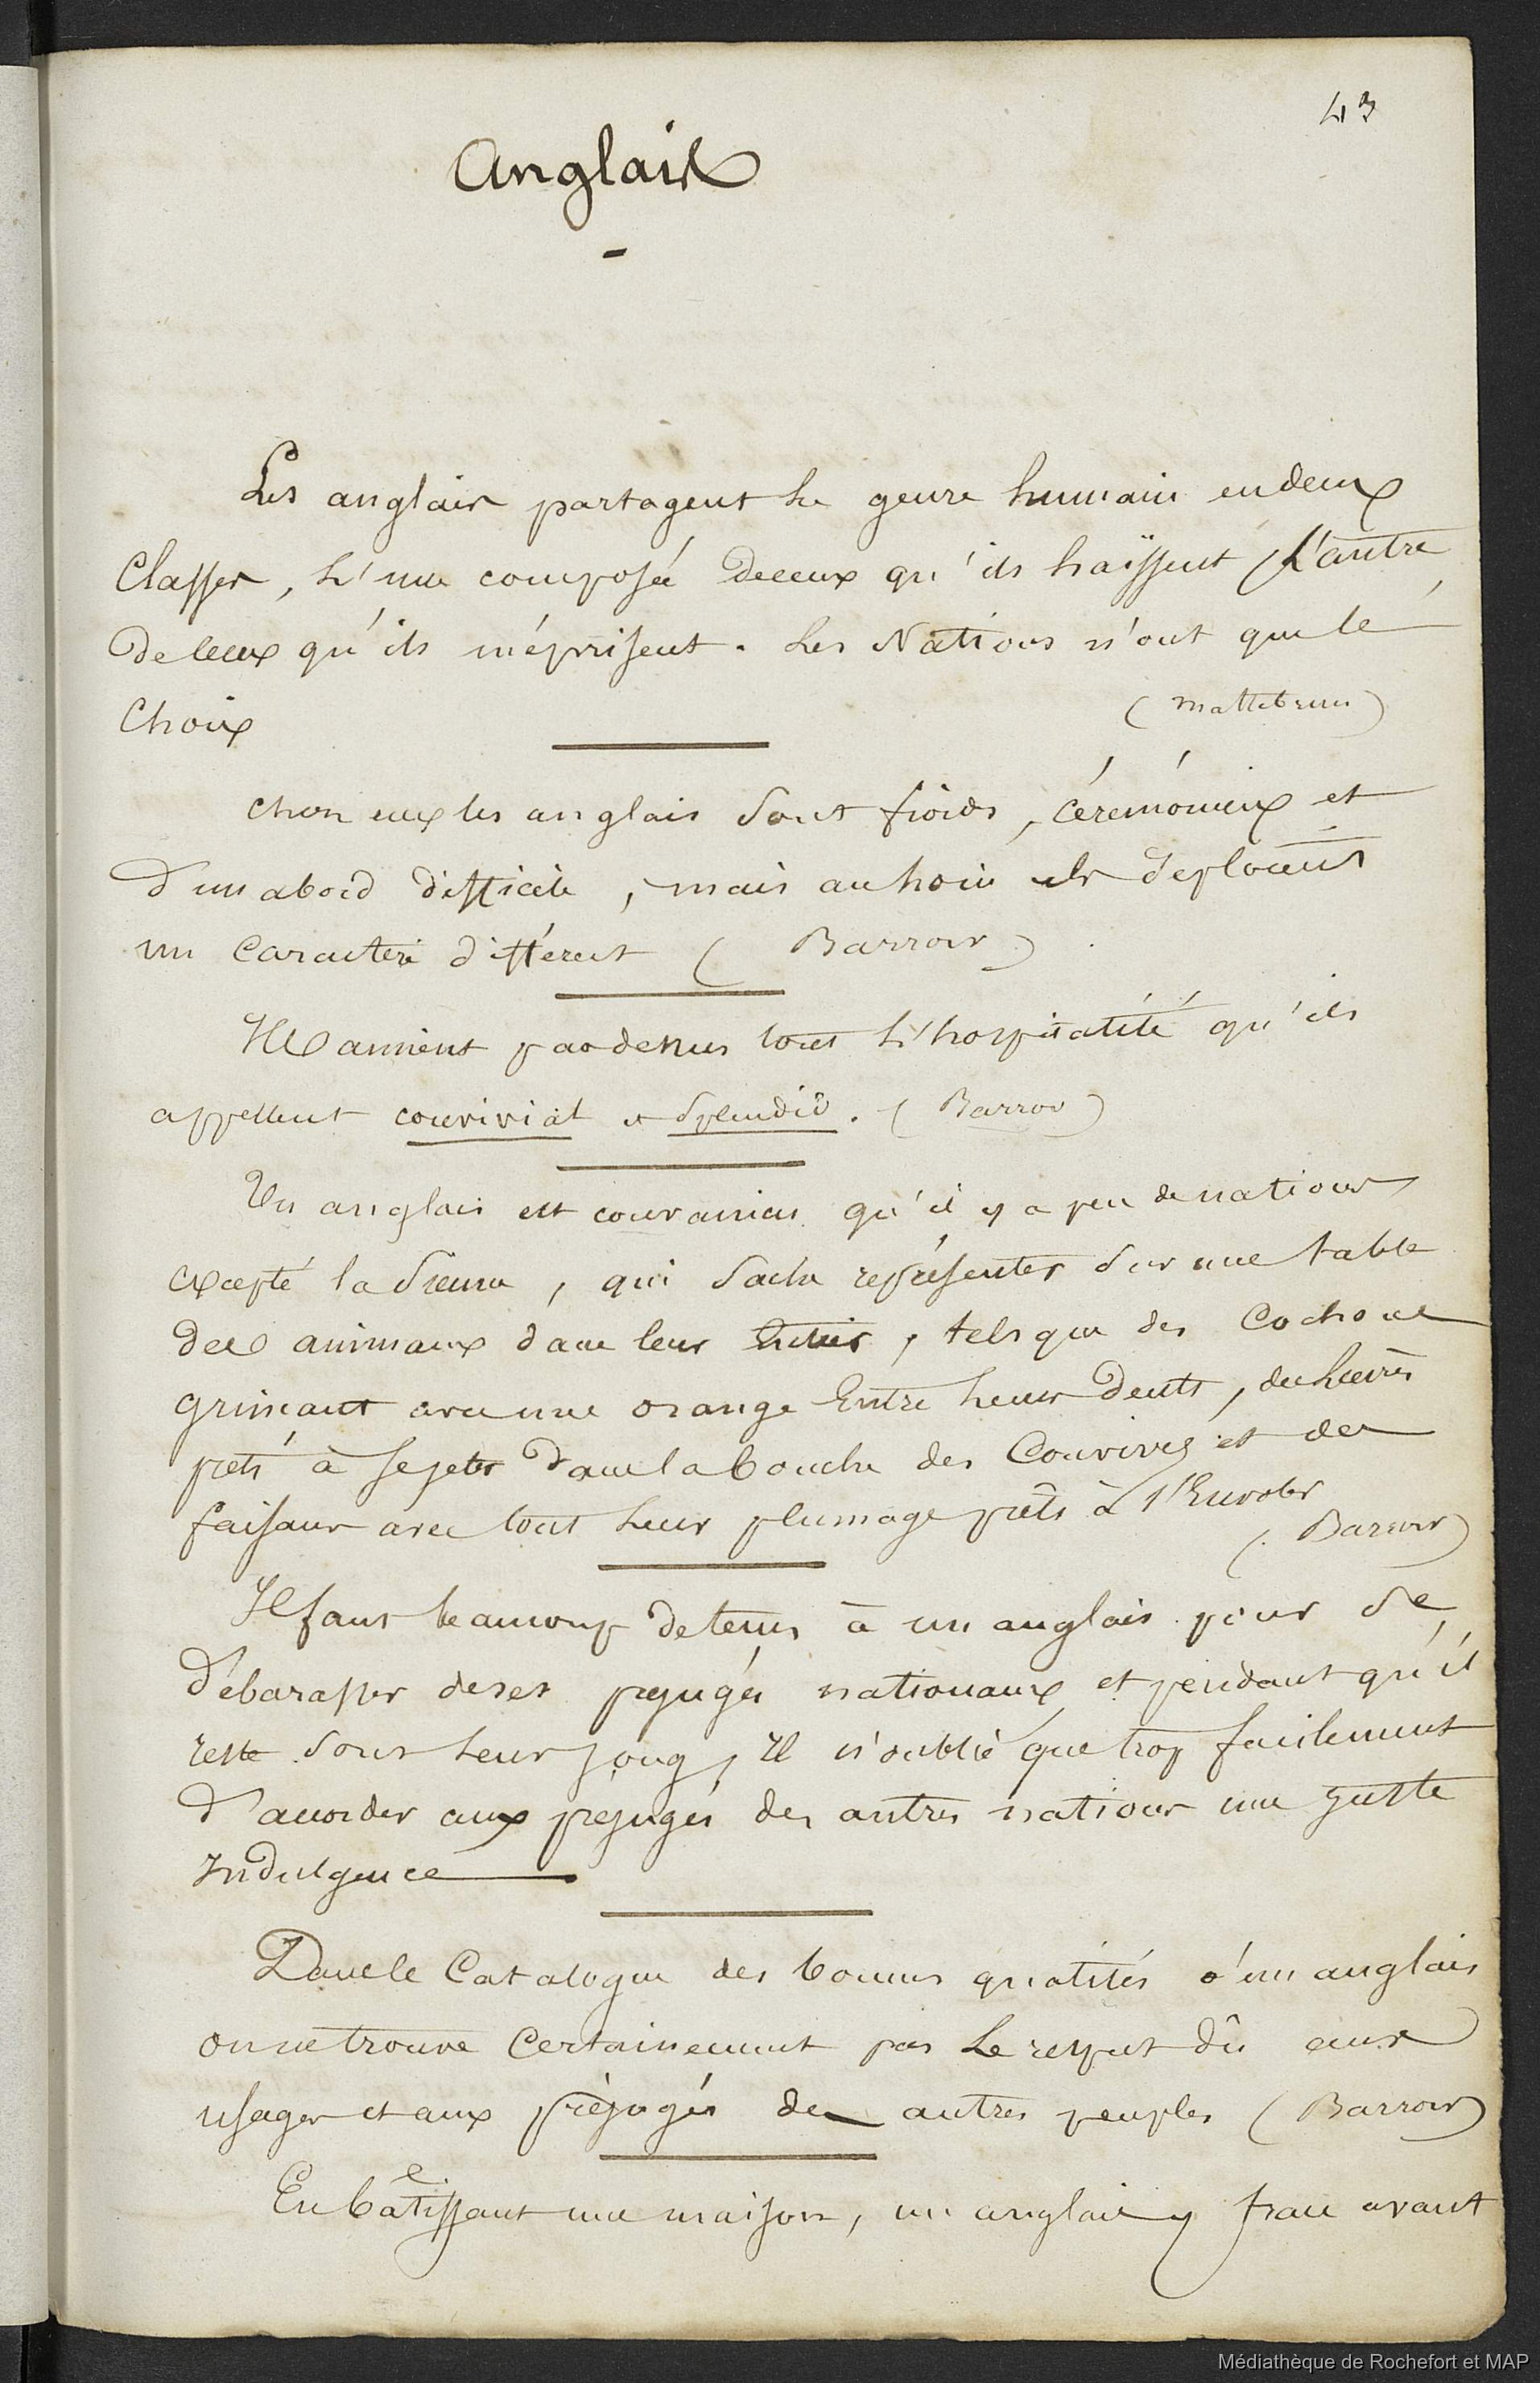 43
Anglais
-
Les anglais partagent le genre humain en deux
Classes, L'une composée de ceux qu'ils haïssent, L'autre
de ceux qu'ils méprisent. Les Nations n'ont que le
Choix
(Maltebrun)
chez eux les anglais sont froids, cérémonieux et
d'un abord difficile, mais au loin ils deploient
un Caractère différent (Barrow)
Ils aiment par dessus tout L'hospitalité qu'ils
appellent convivial et splendid. (Barrow)
Un anglais est convaincu qu'il y a peu de nations
excepté la Sienne, qui sache représenter sur une table
des animaux dans leur entier, tels que des Cochons
grimaçant avec une orange Entre Leurs Dents, des Lièvres
prêts à se jeter dans la bouche des Convives et des
faisans avec tout Leur plumage prêts à s'Envoler
(Barrow)
Il faut beaucoup de tems à un anglais pour se
débarasser de ses préjugés nationaux, et pendant qu'il
reste sous Leur joug, Il n'oublie que trop facilement
d'accorder aux préjugés des autres nations une juste
Indulgence
Dans le Catalogue des bonnes qualités d'un anglais
on ne trouve Certainement pas Le respect dû aux
usages et aux préjugés des autres peuples (Barrow)
En bâtissant une maison, un anglais y trace avant
Médiathèque de Rochefort et MAP